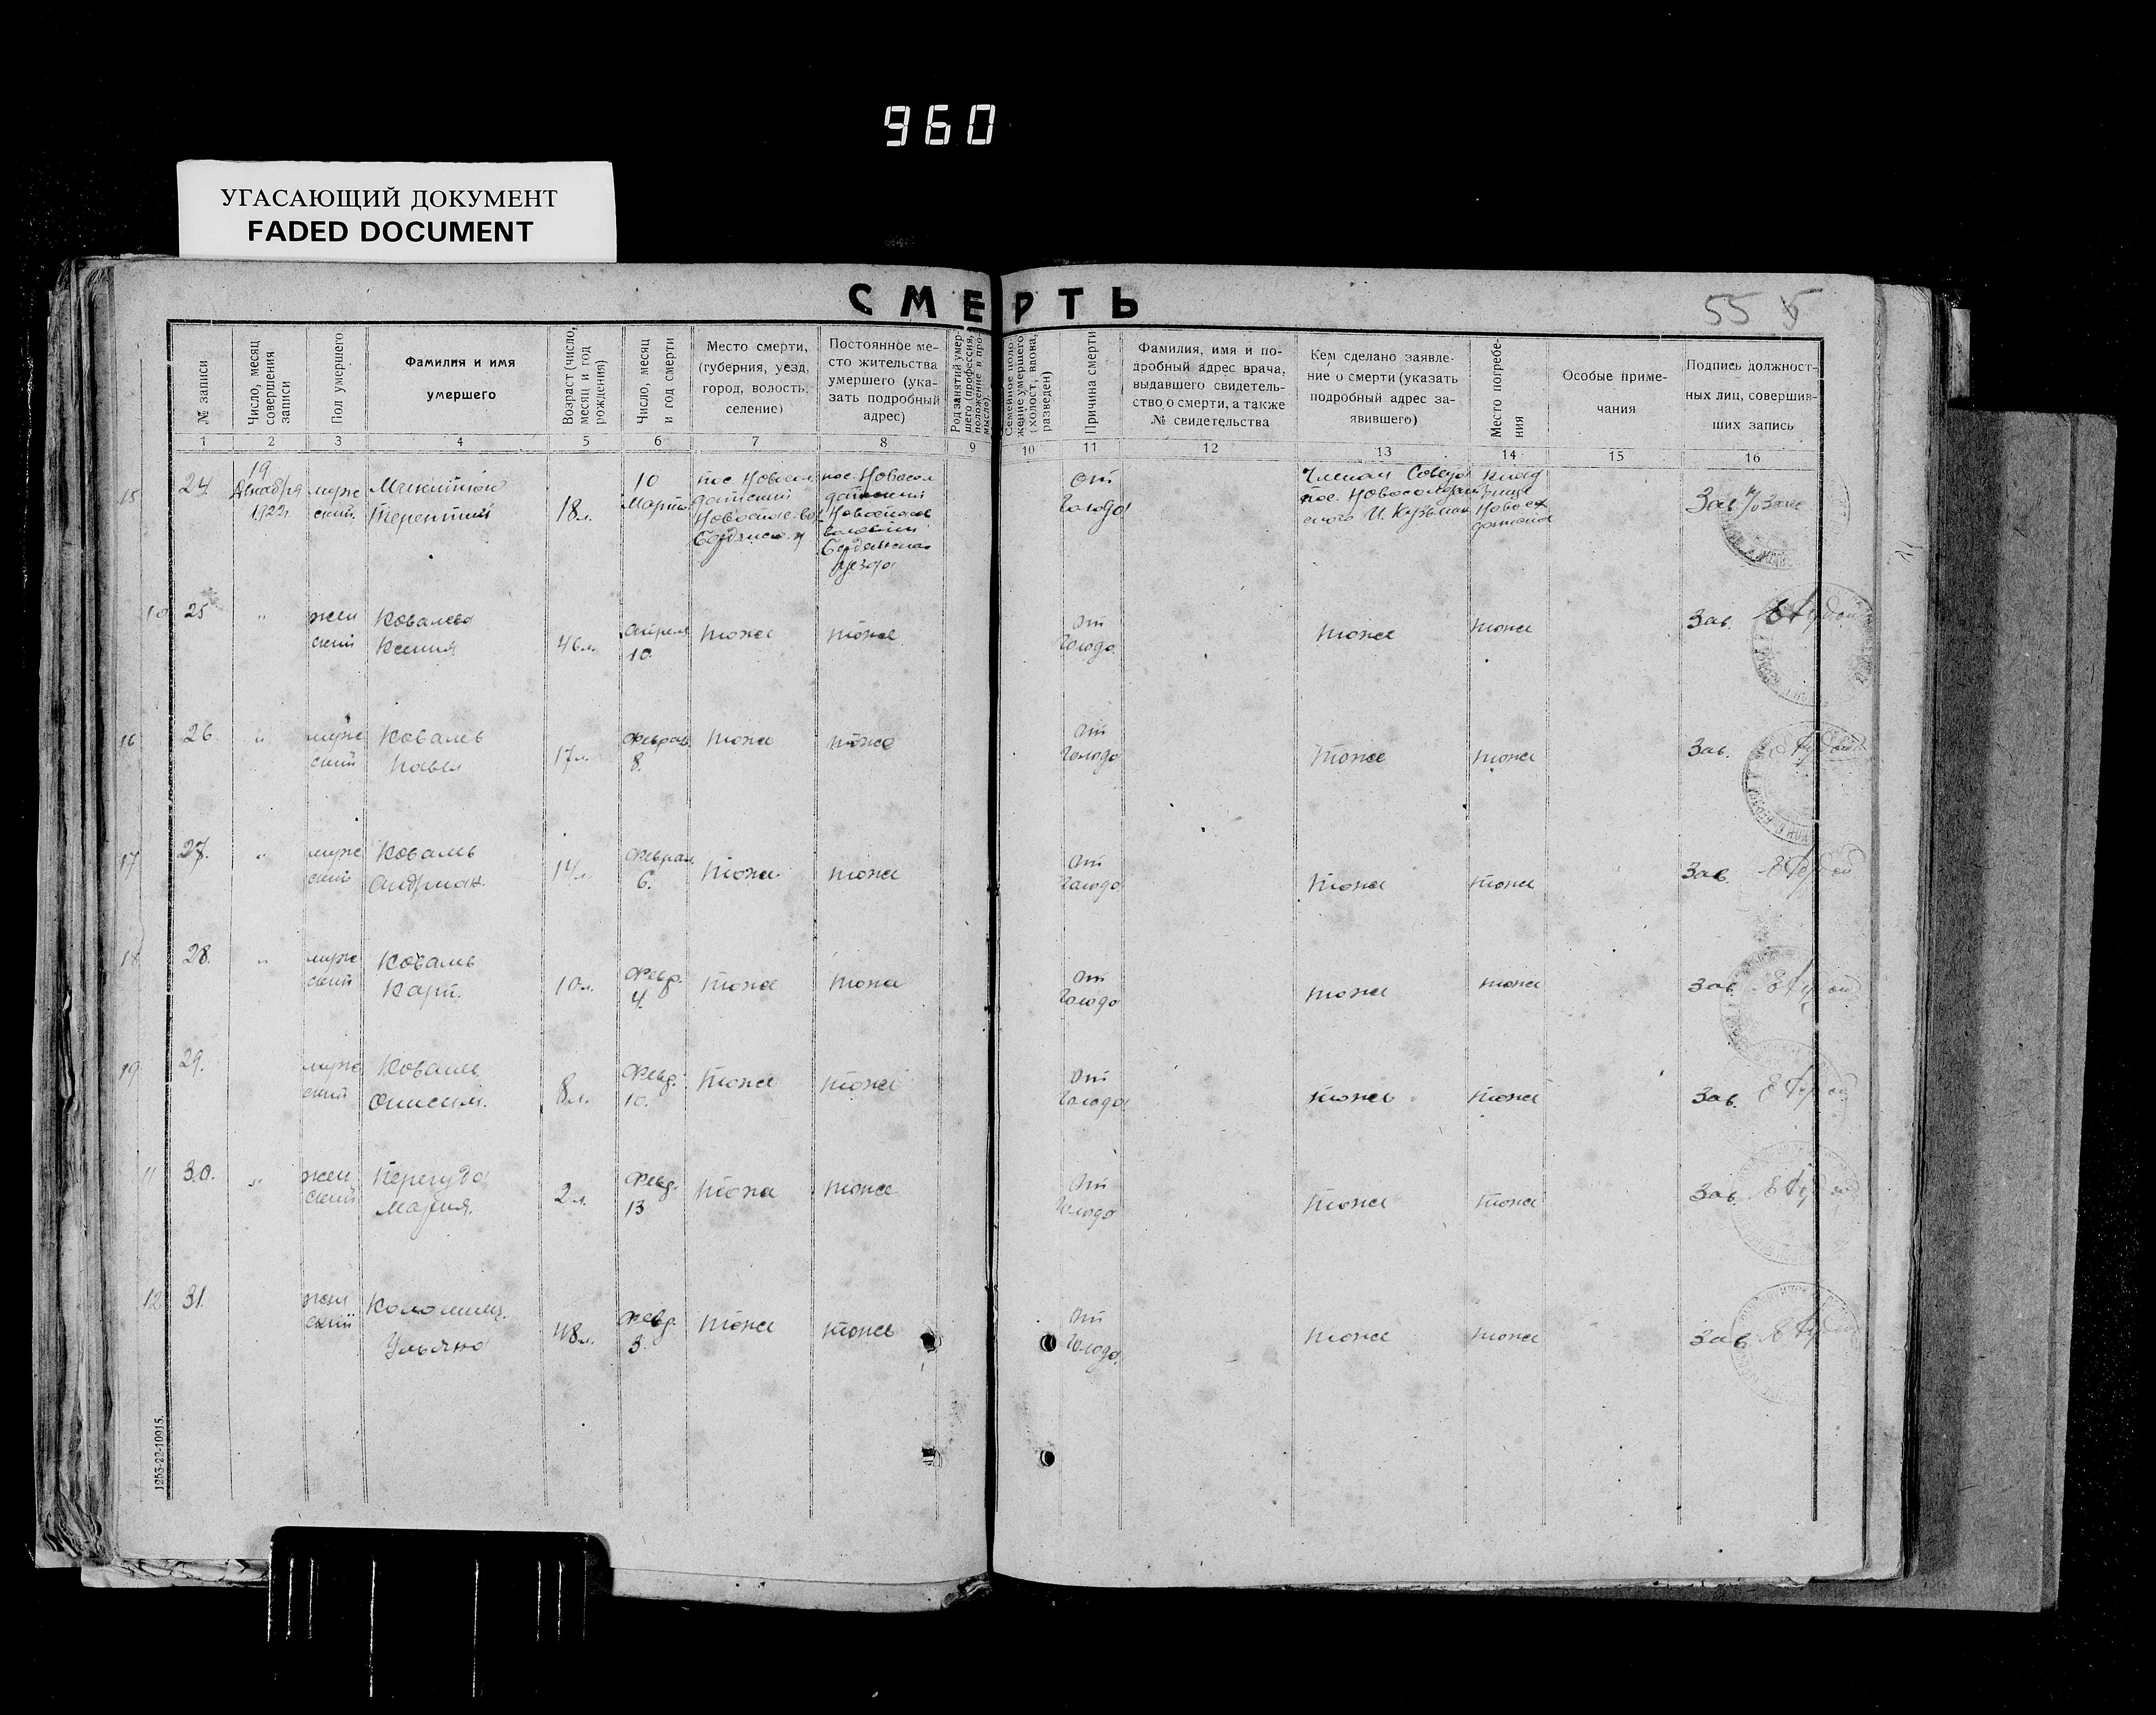 960
УГАСАЮЩИЙ ДОКУМЕНТ
FADED DOCUMENT
СМЕРТЬ
55
№ записи
Число, месяц совершения записи
Пол умершего
Фамилия и имя умершего
Возраст (число, месяц и год рождения)
Число, месяц и год смерти
Место смерти, (губерния, уезд, город, волость, селение)
Постоянное место жительства умершего (указать подробный адрес)
Род занятий умершего (профессия, положение в промысле)
Семейное положение умершего (холост, вдова, разведен)
Причина смерти
Фамилия, имя и подробный адрес врача, выдавшего свидетельство о смерти, а также № свидетельства
Кем сделано заявление о смерти (указать подробный адрес заявившего)
Место погребения
Особые примечания
Подпись должностных лиц, совершивших запись
1 2 3 4 5 6 7 8 9 10 11 12 13 14 15 16
15 24 19 Декабря 1922г. мужской Терентий 18л. 10 Марта от голода Зав.
10 25 " женский Ковалева Ксения 46л. Апреля 10. тоже тоже от голода тоже тоже Зав.
16 26. " мужской Коваль Павел 17л. Феврал. 8. тоже тоже от голода тоже тоже Зав.
17 27. " мужской Коваль Андриан. 14л. Феврал. 6. тоже тоже от голода тоже тоже Зав.
18 28. " мужской Коваль Карп. 10л. Февр. 4. тоже тоже от голода тоже тоже Зав.
19 29. мужской Коваль Онисим. 8л. Февр. 10. тоже тоже от голода тоже тоже Зав.
11 30. " женский Перегуда Мария. 2л. Февр. 13 тоже тоже от голода тоже тоже Зав.
12 31. женский Коломиец. Ульяна 48л. Февр. 3. тоже тоже от голода тоже тоже Зав.
1253-22-10915.